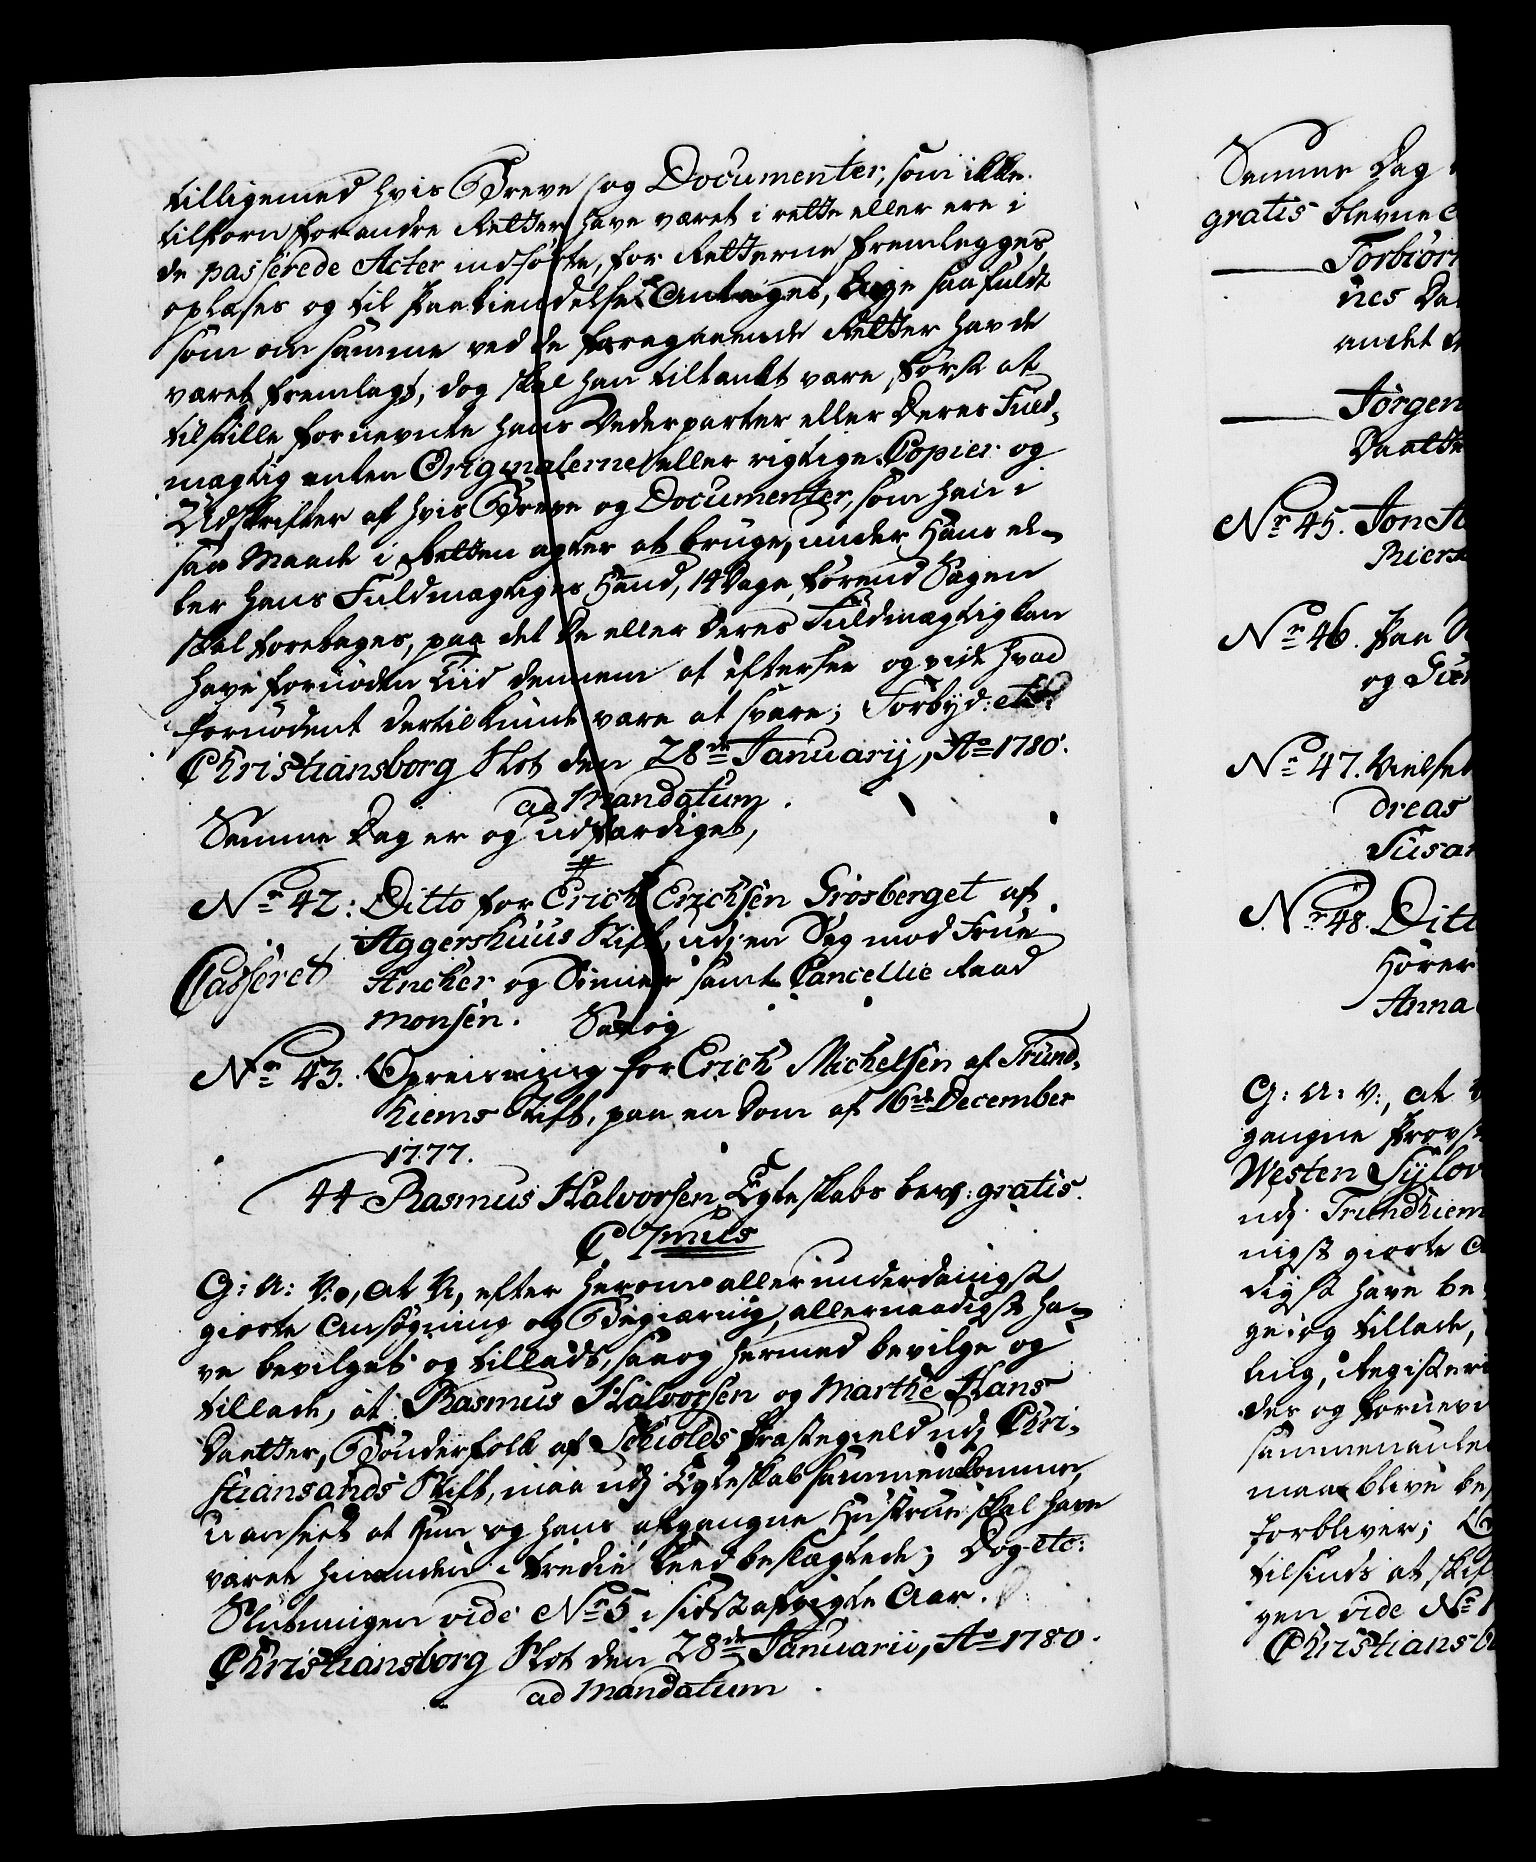 tilligemed hvis Breve og Documenter, som ikke
tilforn for andre Retter have været i rette eller ere i
de passerede Acter indførte, for Retterne fremlegges,
oplæses og til Paakiendelse Antages, lige saa fuldt
som om samme ved de foregaaende Retter havde
været fremlagt, dog skal han tiltænkt være, først at
tilstille fornevnte hans Vederparter eller deres Fuld-
mægtig enten Originalerne eller rigtige Copier og
Udskrifter af hvis Breve og Documenter, som han i
saa Maade i Retten agter at bruge, under Hans el-
ler hans Fuldmægtiges Haand, 14 Dage, førend Sagen
skal foretages, paa det De eller deres Fuldmægtig kan
have fornøden Tiid dennem at eftersee og vide hvad
fornødent dertil kunde være at svare; Forbyd: etc:
Christiansborg Slot den 28de Januarij, Ao 1780.
ad Mandatum.
Samme Dag er og udfærdiget,
No 42: Ditto for Erich Erichsen Grosberget af
Aggershuus Stift, udj en Sag mod Frue
Casseret
Ancher og Sønner samt Cancellie Raad
Monsen. Saa og
No 43. Opreisning for Erich Michelsen af Trund-
hiems Stift, paa en Dom af 16de December
1777.
44 Rasmus Halvorsen Egteskabs bev: gratis.
C 7mus
G: A: V:, at Vi, efter herom allerunderdanigst
giorte Ansøgning og Begiæring, allernaadigst ha-
ve bevilget og tilladt, saa og hermed bevilge og
tillade, at Rasmus Halvorsen og Marthe Hans
Daatter, Bønderfolk af Schiolds Præstegield udj Chri-
stiansands Stift, maa udj Egteskab sammenkomme,
uanseet at Hun og hans afgangne Hustrue skal have
været hinanden i tredie Leed beslægtede; Dog etc:
Slutningen vide No 5 i sidst afvigte Aar.
Christiansborg Slot den 28de Januarii, Ao 1780.
ad Mandatum.
Samme Dag
gratis blevne
Torbiörn
nes
andet
Jørgen
Daatter
No 45. Jon
No 46. Paa
og
No 47. Vielse
dreas
Susan
No 48. Ditt
Hører
Anna
G: A: V:, at
gangne Provst
Westen Sylov
udj Trundhiem
nigst giorte
digst have be
ge og tillade,
ling, Registeri
des og fornevn
sammen
maae blive be
forbliver;
tilsinds at skif
gen vide No
Christiansb